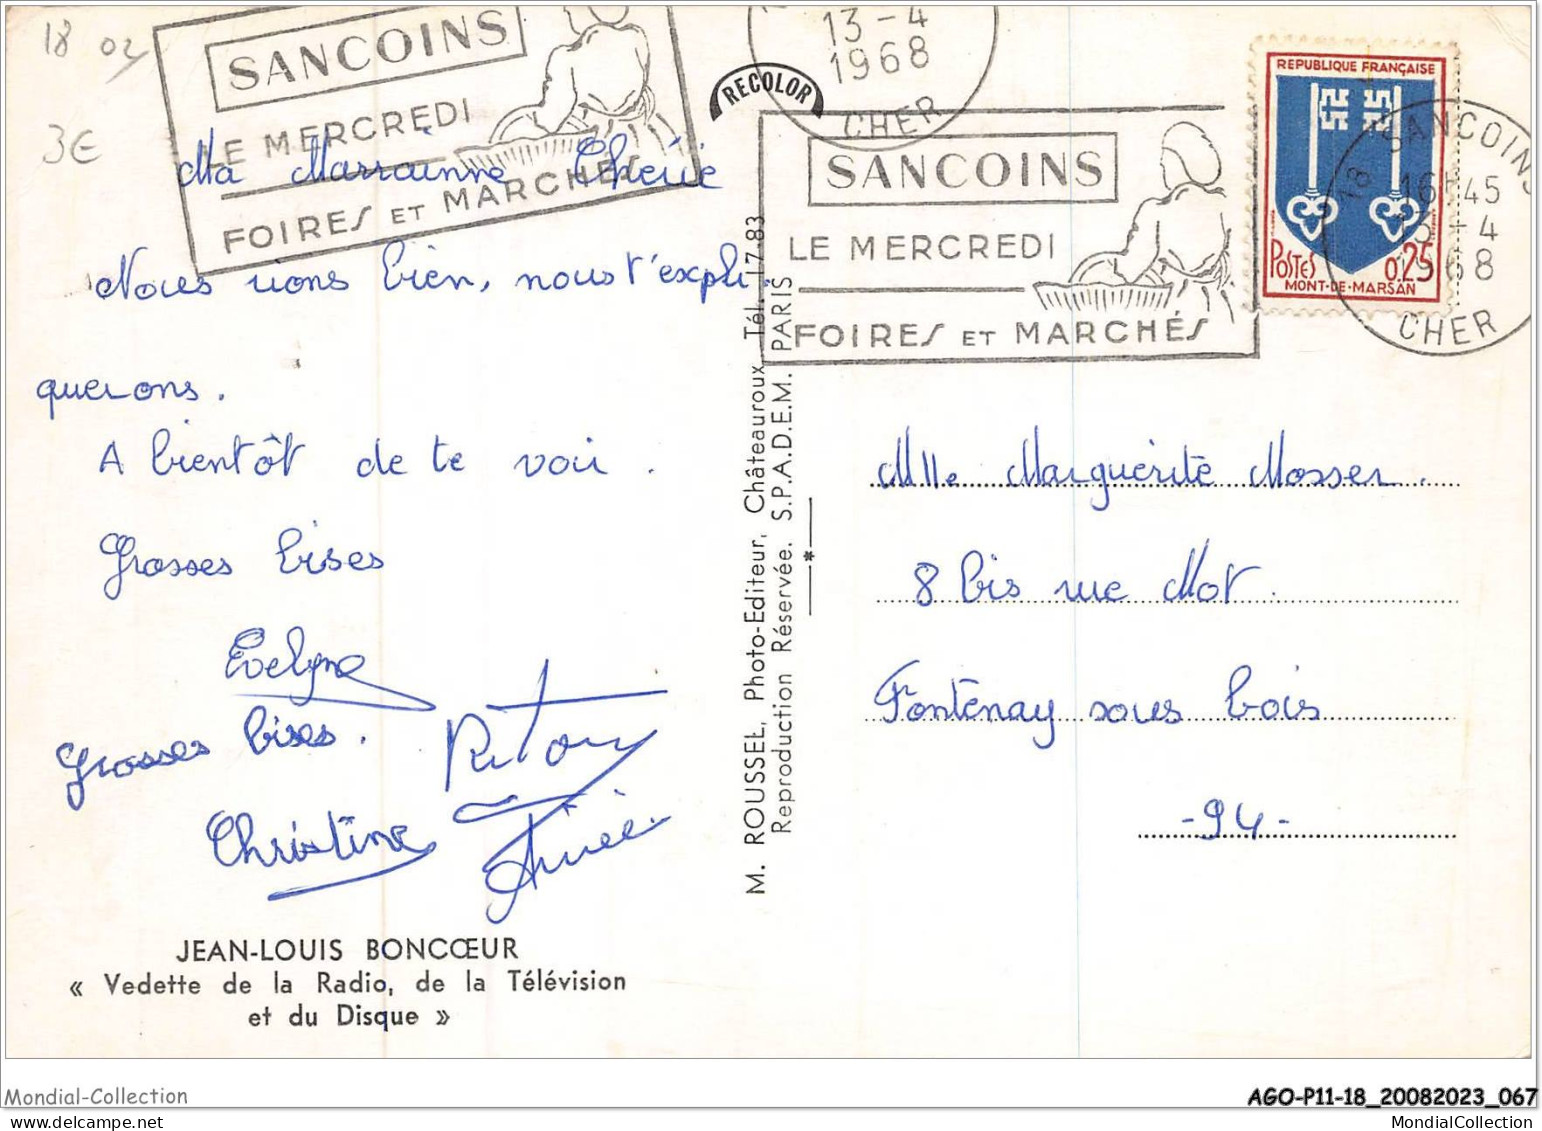 18 02
3€
SANCOINS
LE MERCREDI
FOIRES ET MARCHÉS
13-4
1968
CHER
RECOLOR
SANCOINS
LE MERCREDI
FOIRES ET MARCHÉS
REPUBLIQUE FRANÇAISE
POSTES 0,25
MONT-DE-MARSAN
18 SANCOINS
16H45
13-4
1968
CHER
Ma Marrainne Chérie
Nous rions bien, nous t'expli
querons.
A bientôt de te voir.
Grosses bises
Evelyne
Grosses bises.
Christine
Aimée
JEAN-LOUIS BONCŒUR
« Vedette de la Radio, de la Télévision
et du Disque »
M. ROUSSEL, Photo-Editeur, Châteauroux Tél. 17-83
Reproduction Réservée. S.P.A.D.E.M. PARIS
Mlle Marguerite Mosser.
8 bis rue Mot.
Fontenay sous bois
-94-
Mondial-Collection
AGO-P11-18_20082023_067
MondialCollection